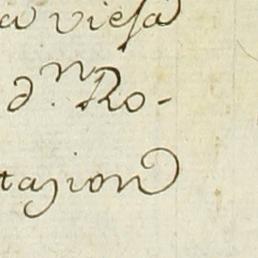 a viesa
dn. Ro-
tazion